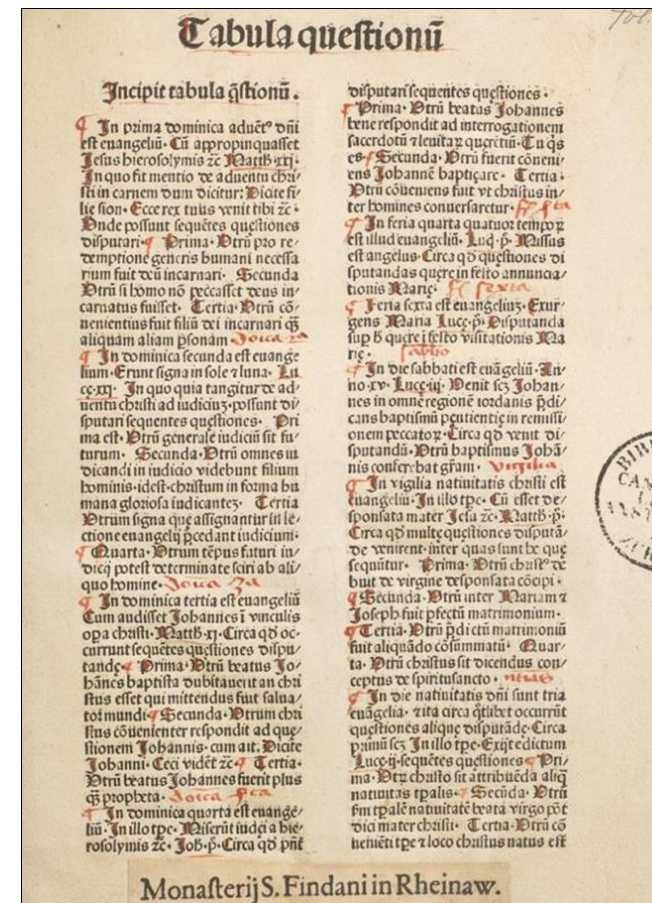 Tabula questionū
Incipit tabula q̄stionū.
In prima dominica aduēt⁹ dn̄i
est euangeliū. Cū appropinquasset
Jesus hierosolymis ⁊c̄ Matth. xxj.
In quo fit mentio de aduentu chri/
sti in carnem dum dicitur: Dicite fi/
lie sion. Ecce rex tuus venit tibi ⁊c̄.
Unde possunt sequētes questiones
disputari. Prima. Utrū pro re/
demptione generis humani necessa
rium fuit deū incarnari. Secunda
Utrū si homo nō peccasset deus in/
carnatus fuisset. Tertia. Utrū cō/
uenientius fuit filiū dei incarnari q̄ȝ
aliquam aliam p̄sonam. Dōica 2ᵃ
In dominica secunda est euange
lium. Erunt signa in sole ⁊ luna. Lu
cę. xxj. In quo quia tangitur de ad/
uentu christi ad iudiciuȝ. possunt di/
sputari sequentes questiones. Pri
ma est. Utrū generale iudiciū sit fu/
turum. Secunda. Utrū omnes iu
dicandi in iudicio videbunt filium
hominis. idest. christum in forma hu
mana gloriosa iudicanteȝ. Tertia
Utrum signa que assignantur in le/
ctione euangelij p̄cedant iudicium.
Quarta. Utrum tēpus futuri iu/
dicij potest determinate sciri ab ali/
quo homine. Dōica 3ᵃ
In dominica tertia est euangeliū
Cum audisset Johannes ī vinculis
opa christi. Matth. xj. Circa qd̄ oc/
currunt sequētes questiones dispu/
tandę. Prima. Utrū beatus Jo/
hānes baptista dubitauerit an chri
stus esset qui mittendus fuit salua/
tor mundi. Secunda. Utrum chri
stus cōuenienter respondit ad que/
stionem Johannis. cum ait. Dicite
Johanni. Ceci vidēt ⁊c̄. Tertia.
Utrū beatus Johannes fuerit plus
q̄ȝ propheta. Dōica 4ᵗᵃ
In dominica quarta est euangę/
liū. In illo tp̄e. Miserūt iudei a hie/
rosolymis ⁊c̄. Joh. p̄. Circa qd̄ pn̄t
disputari sequentes questiones.
Prima. Utrū beatus Johannes
bene respondit ad interrogationem
sacerdotū ⁊ leuitaꝝ querētiū. Tu q̄s
es. Secunda. Utrū fuerit cōueni/
ens Johannē baptiçare. Tertia.
Utrū cōueniens fuit vt christus in/
ter homines conuersaretur.
In feria quarta quatuor tempoꝝ
est illud euangeliū. Luc̄. p̄. Missus
est angelus. Circa qd̄ questiones di
sputandas quere in festo annuncia/
tionis Marię.
Feria sexta est euangeliuȝ. Exur/
gens Maria Lucę. p̄. Disputanda
sup h̄ quere ī festo visitationis Ma
rię. sabbō
In die sabbati est euāgeliū. An/
no. xv. Lucę. iij. Uenit scȝ Johan/
nes in omnē regionē iordanis p̄di/
cans baptismū pęnitentię in remissi/
onem peccatoꝝ. Circa qd̄ venit di/
sputandū. Utrū baptismus Johā/
nis conferebat gr̄am. Vigilia
In vigilia natiuitatis christi est
euangeliū. In illo tp̄e. Cū esset de/
sponsata mater Jesu ⁊c̄. Matth. p̄.
Circa qd̄ multę questiones disputā/
dę venirent. inter quas sunt hę que
sequūtur. Prima. Utrū christ⁹ de
buit de virgine desponsata cōcipi.
Secunda. Utrū inter Mariam ⁊
Joseph fuit pfectū matrimonium.
Tertia. Utrū p̄dictū matrimoniū
fuit aliquādo cōsummatū. Quar/
ta. Utrū christus sit dicendus con/
ceptus de spiritusancto.
In die natiuitatis dn̄i sunt tria
euāgelia. ⁊ ita circa qd̄libet occurrūt
questiones alique disputādę. Circa
primū scȝ In illo tp̄e. Exijt edictum
Lucę. ij. sequētes questiones. Pri/
ma. Utꝝ christo sit attribuēda aliq̄
natiuitas tp̄alis. Secūda. Utrū
fm̄ tp̄alē natiuitatē beata virgo pōt
dici mater christi. Tertia. Utrū cō
ueniēti tp̄e ⁊ loco christus natus est
Monasterij S. Findani in Rheinaw.